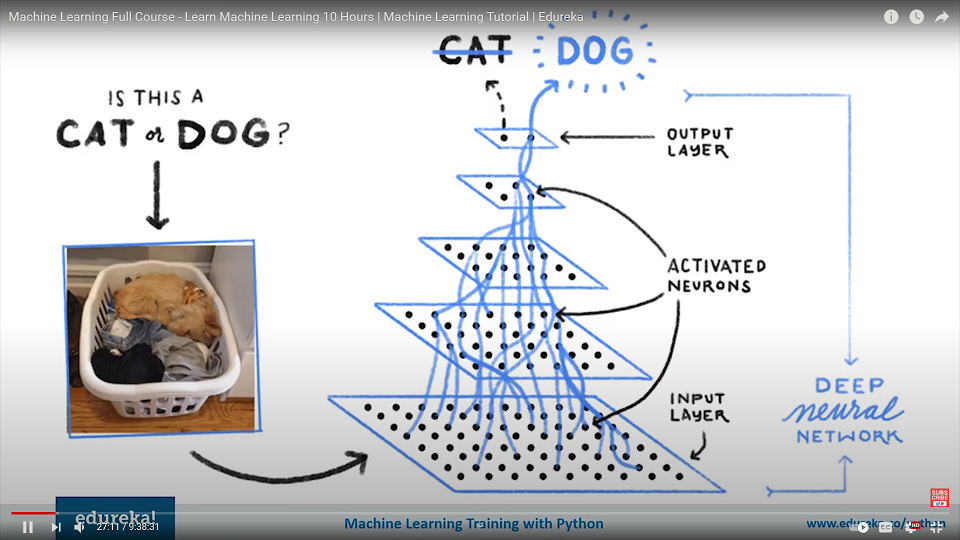 Machine Learning Full Course - Learn Machine Learning 10 Hours | Machine Learning Tutorial | Edureka
CAT DOG
IS THIS A
CAT or DOG?
OUTPUT
LAYER
ACTIVATED
NEURONS
INPUT
LAYER
DEEP
neural
NETWORK
SUBSCRIBE
edureka!
27:11 / 9:38:31
Machine Learning Training with Python
www.edureka.co/python
HD